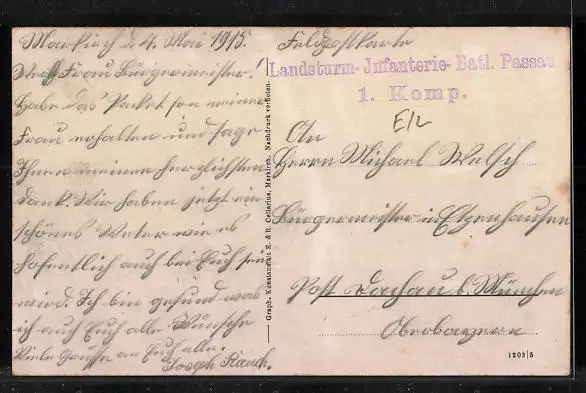 Markirch d. 4. Mai 1915.
Werthe Frau Bürgermeister!
Habe das Packet fon meiner
Frau erhalten und sage
Ihnen meinen herzlichsten
Dank. Wir haben jetzt ein
schönes Weter wie es
hofentlich auch bei Euch sein
wird. Ich bin gesund was
ich auch Euch alle Wünsche
Viele Grüsse an Euch alle.
Joseph Rauch.
Graph. Kunstanstalt E. & R. Cellarius, Markirch. Nachdruck verboten.
Feldpostkarte
Landsturm-Infanterie-Batl. Passau
1. Komp.
E/L
An
Herrn Michael Welsch
Bürgermeister in Etzenhausen
Post Dachau b. München
Oberbayern
1203/5